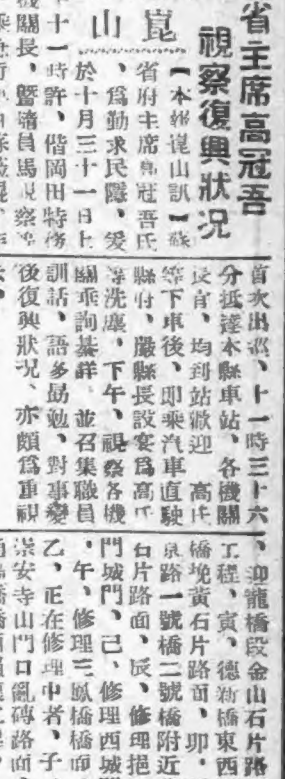 省主席高冠吾
視察復興狀况
崑山
【本報崑山訊】蘇
省府主席高冠吾氏
、爲勤求民隱、爰
於十月三十一日上
十一時許、偕岡田特務
機關長、暨隨員馬視察
首次出巡、十一時三十六
分抵達本縣車站、各機關
長官、均到站歡迎 高氏
等下車後、即乘汽車直駛
縣府、嚴縣長設宴爲高氏
等洗塵、下午、視察各機
關垂詢綦詳、並召集職員
訓話、語多勗勉、對事變
後復興狀况、亦頗爲重視
、迎龍橋段金山石片路
工程、寅、德新橋東西
橋堍黃石片路面、卯、
京路一號橋二號橋附近
石片路面、辰、修理挹
門城門、己、修理西城
、午、修理三鳳橋橋面
乙、正在修理中者、子
崇安寺山門口亂磚路面